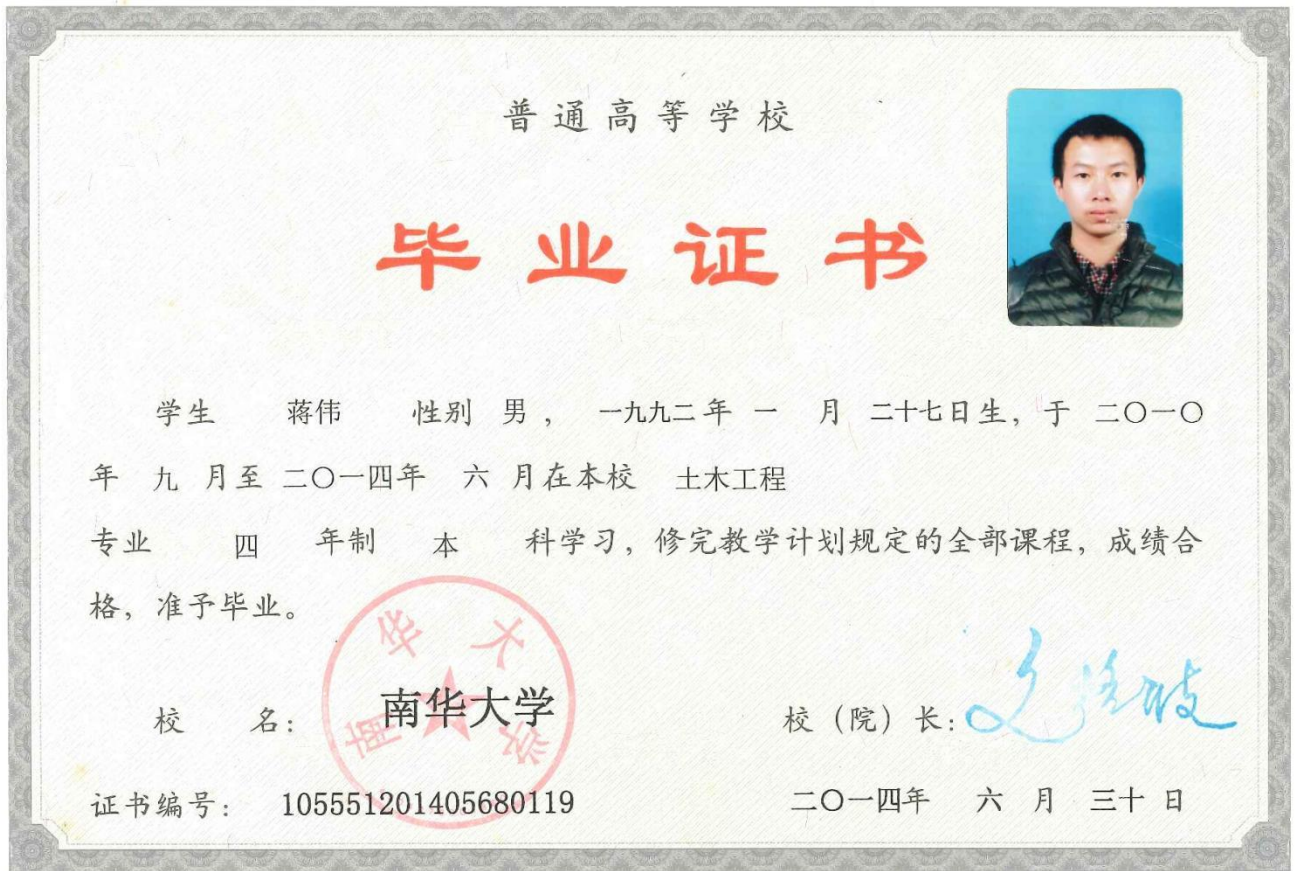 普通高等学校
毕业证书
学生 蒋伟 性别 男， 一九九二年 一 月 二十七日生，于 二〇一〇
年 九 月至 二〇一四年 六 月在本校 土木工程
专业 四 年制 本 科学习，修完教学计划规定的全部课程，成绩合
格，准予毕业。
南华大学
校 名： 南华大学
校（院）长：
证书编号： 105551201405680119
二〇一四年 六 月 三十 日